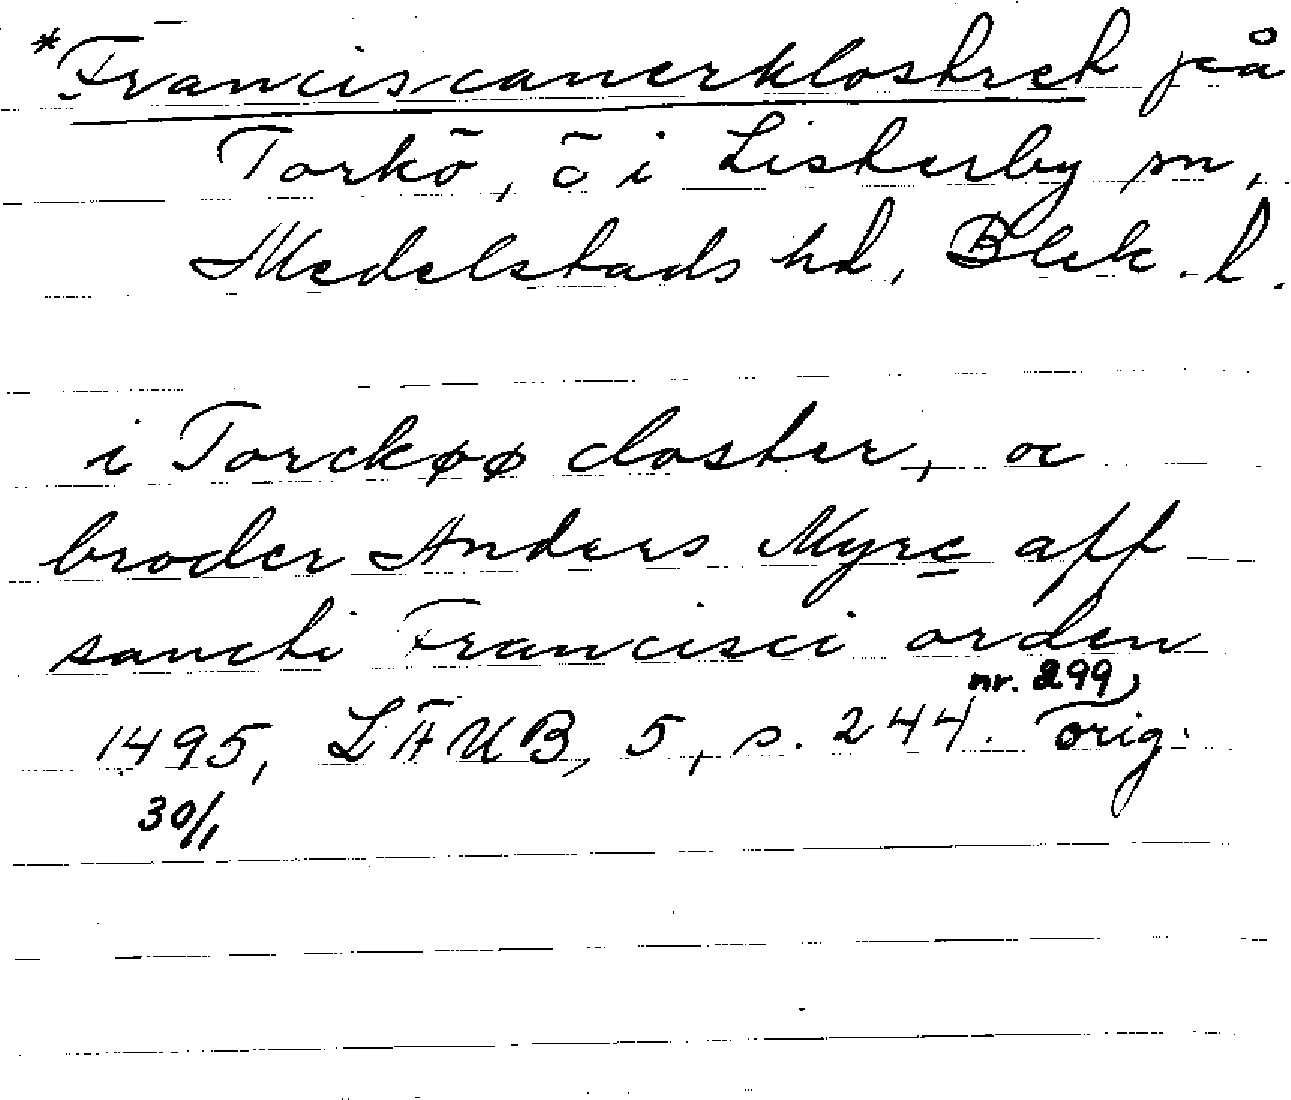 *Franciscanerklostret på
Torkö, ö i Listerby sn,
Medelstads hd, Blek. l.
i Torckøø closter, oc
broder Anders Myre aff
sancti Francisci orden
nr. 299,
1495, LÄUB, 5, s. 244. orig.
30/1